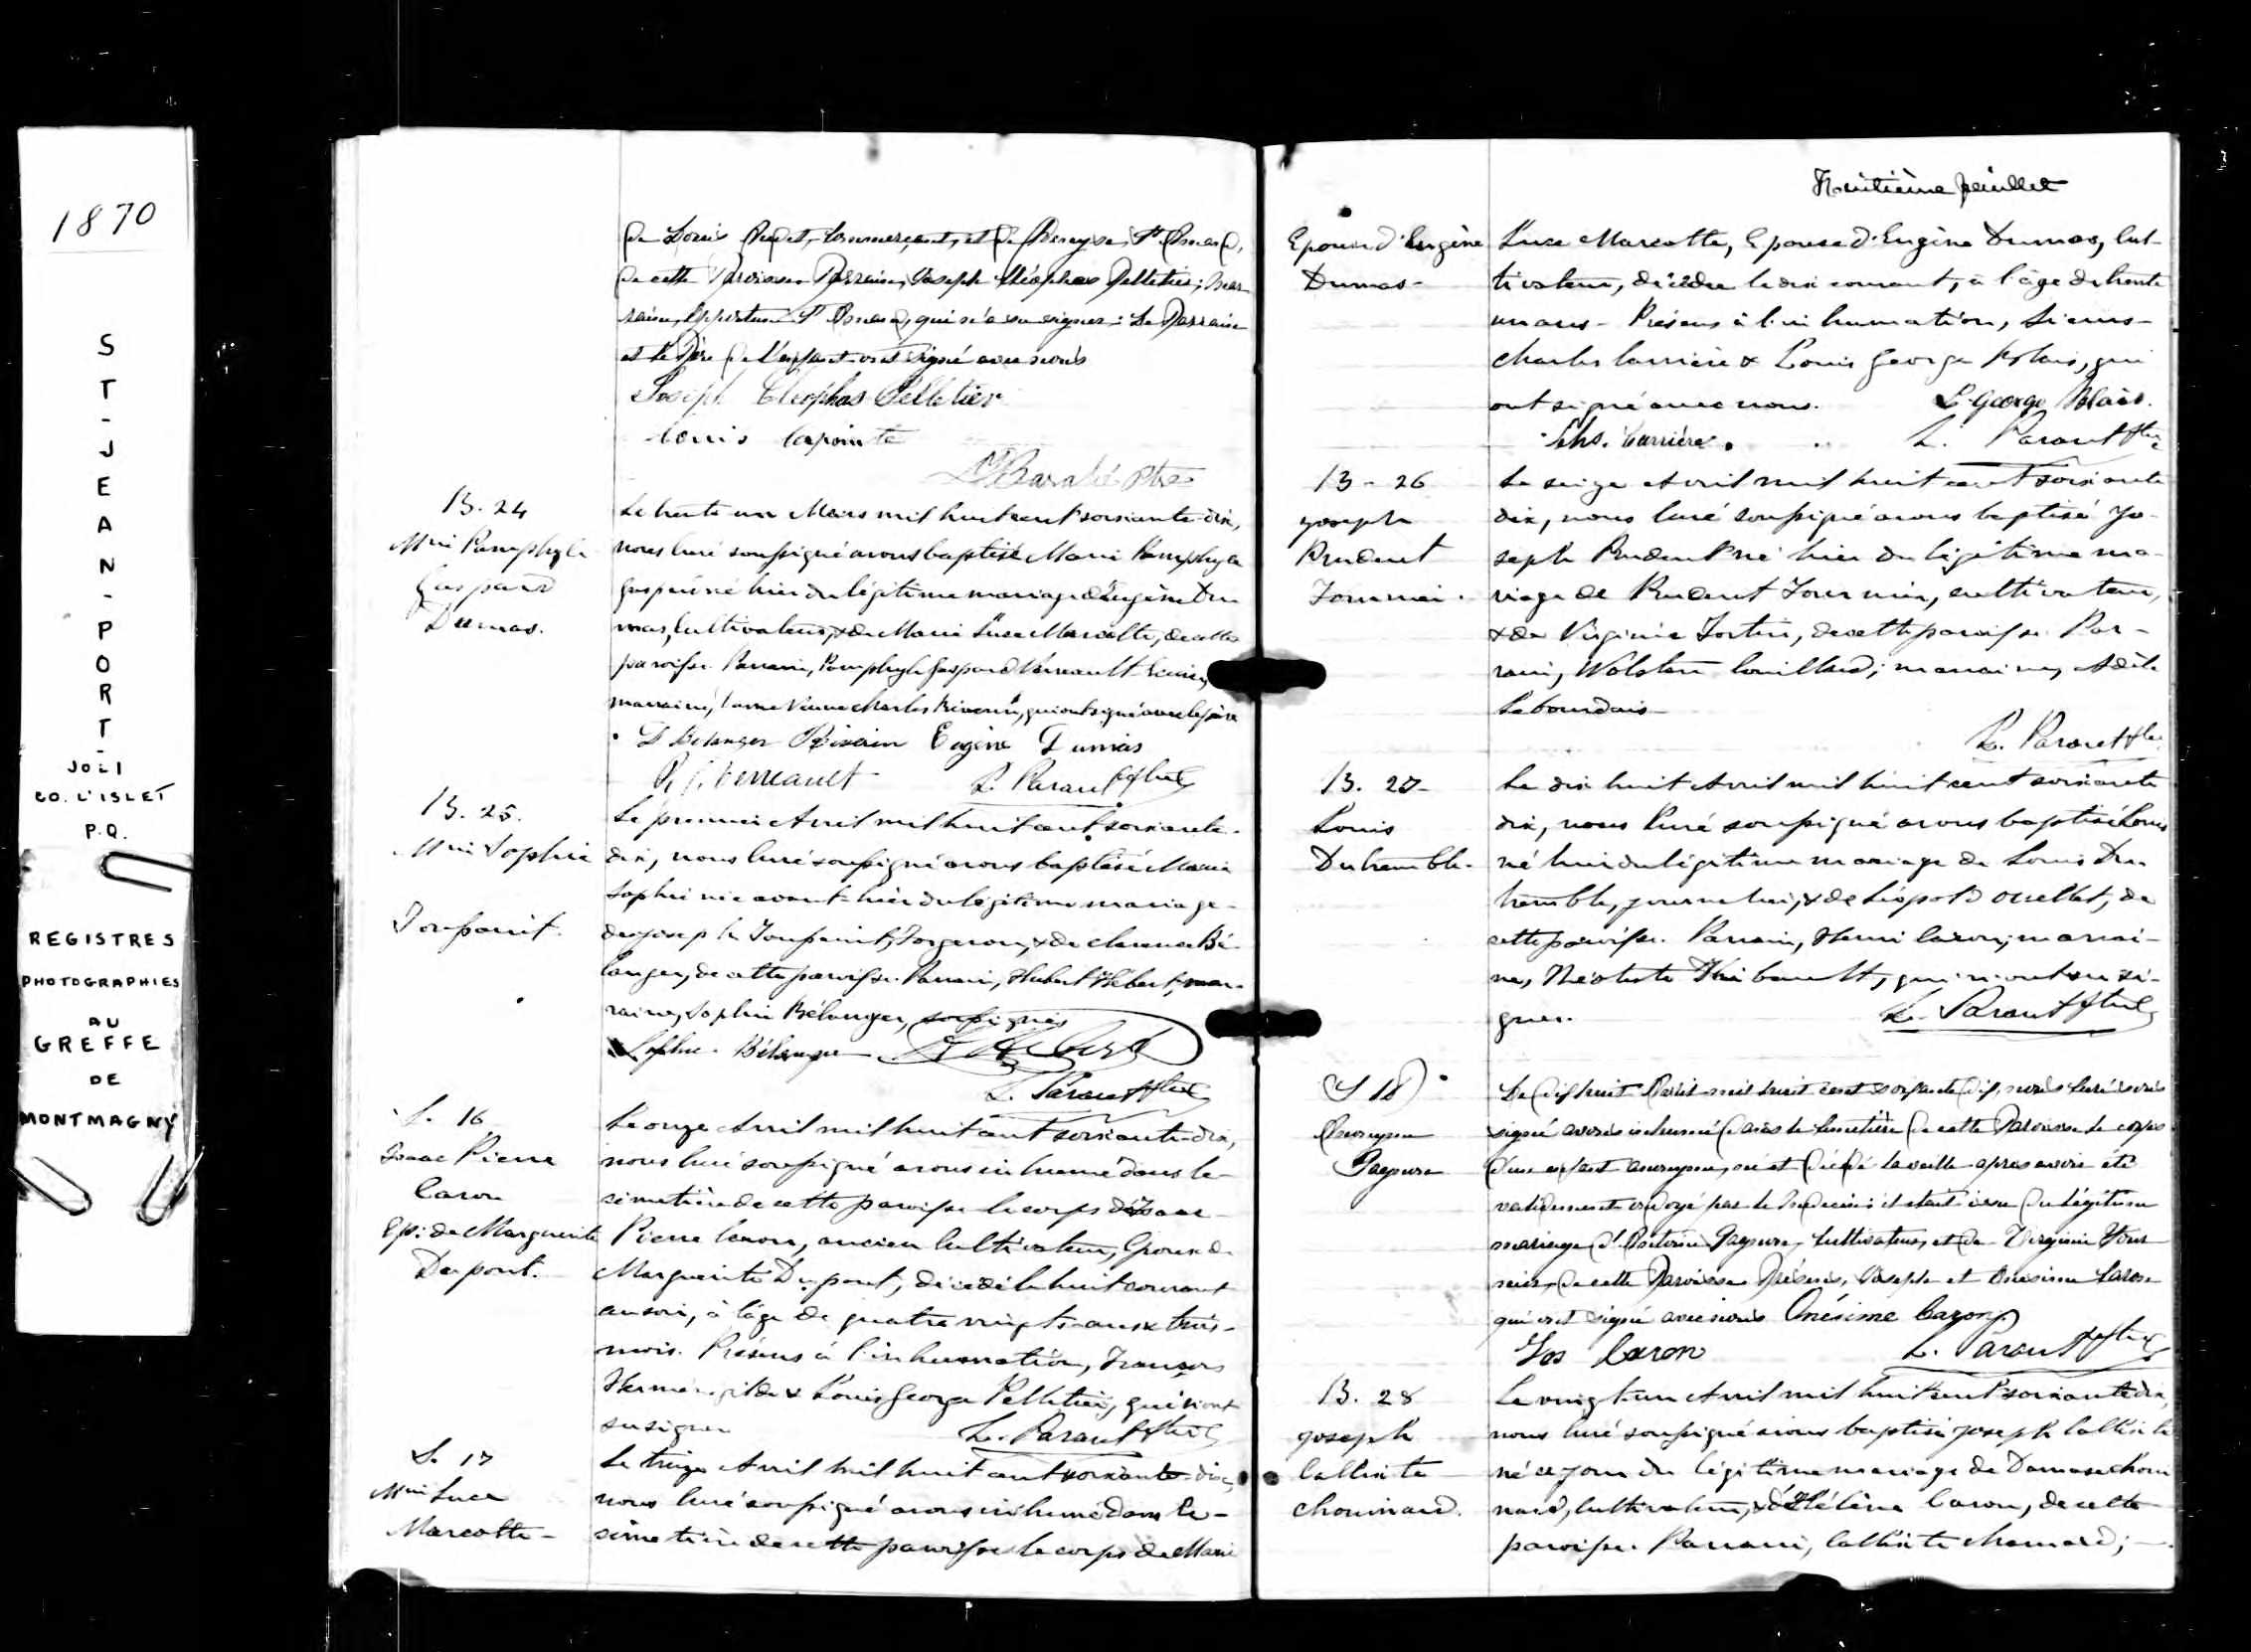 1870
ST-JEAN-PORT-
JOLI
CO. L'ISLET
P.Q.
REGISTRES
PHOTOGRAPHIES
AU
GREFFE
DE
MONTMAGNY
de Louis
de cette Paroisse Parrain, Joseph Cléophas Pelletier; mar
raine, qui n'a su signer: Le Parrain
et le Père de l'enfant ont signé avec nous
Joseph Cléophas Pelletier
Louis Lapointe
Ptre
B. 24
Mrie Pamphyle
Gaspard
Dumas.
Le trente un Mars mil huit cent soixante-dix,
nous curé soussigné avons baptisé Marie Pamphyle
Gaspard né hier du légitime mariage d'Eugène Du
mas, Cultivateur, & de Marie Luce Marcotte, de cette
paroisse. Parrain, Pamphyle Gaspard Verreault Ecuier,
marraine, Dame Veuve Charles Riverin, qui ont signé avec le père
D Bélanger Riverin Eugène Dumas
P. G. Verreault L. Parant Ptre
B. 25.
Mrie Sophie
Toussaint.
Le premier Avril mil huit cent soixante-
dix, nous curé soussigné avons baptisé Marie
Sophie née avant-hier du légitime mariage
de Joseph Toussaint, forgeron, & de Clarence Bé-
langer, de cette paroisse. Parrain, Hubert Hébert, mar-
raine, Sophie Bélanger, soussignés
Sophie Bélanger H Hébert
L. Parant Ptre
S. 16
Isaac Pierre
Caron
Ep: de Marguerite
Dupont.
Le onze Avril mil huit cent soixante-dix,
nous curé soussigné avons inhumé dans le
cimetière de cette paroisse le corps d'Isaac
Pierre Caron, ancien Cultivateur, Epoux de
Marguerite Dupont, décédé le huit courant
au soir, à l'âge de quatre vingts ans & trois
mois. Présens à l'inhumation, François
Herménégilde & Louis George Pelletier, qui n'ont
su signer L. Parant Ptre
S. 17
Mrie Luce
Marcotte-
Le treize Avril mil huit cent soixante-dix,
nous curé soussigné avons inhumé dans le
cimetière de cette paroisse le corps de Marie
Huitième feuillet
Epouse d'Eugène
Dumas-
Luce Marcotte, Epouse d'Eugène Dumas, cul-
tivateur, décédée le dix courant, à l'âge de trente
un ans - Présens à l'inhumation, Sieurs
Charles Carrière & Louis George Blais, qui
ont signé avec nous. L. George Blais.
Chs. Carrière. L. Parant Ptre
B - 26
Joseph
Prudent
Fournier.
Le seize Avril mil huit cent soixante
dix, nous curé soussigné avons baptisé Jo-
seph Prudent né hier du légitime ma-
riage de Prudent Fournier, cultivateur,
& de Virginie Fortin, de cette paroisse. Par-
rain, Couillard; marraine, Adèle
Lebourdais
L. Parant Ptre
B. 27-
Louis
Dutremble-
Le dix huit Avril mil huit cent soixante
dix, nous Curé soussigné avons baptisé Louis
né hier du légitime mariage de Louis Du
tremble, journalier, & de Ouellet, de
cette paroisse. Parrain, Henri Caron; marrai-
ne, Théotiste Thibault, qui n'ont su si-
gner. L. Parant Ptre
S 18
Anonyme
Le dix huit Avril mil huit cent soixante dix, nous Curé sous
signé avons inhumé dans le Cimetière de cette Paroisse le corps
d'un enfant anonyme, né et décédé la veille après avoir été
validement ondoyé par le Médecin: il était issu du légitime
mariage d' cultivateur, et de Virginie Four
nier, de cette Paroisse. Présens, Joseph et Onésime Caron
qui ont signé avec nous Onésime Caron
Jos Caron L. Parant Ptre
B. 28
Joseph
Callixte
Chouinard.
Le vingt-un Avril mil huit cent soixante dix,
nous curé soussigné avons baptisé Joseph Callixte
né ce jour du légitime mariage de Damase Choui
nard, Cultivateur, & d'Hélène Caron, de cette
paroisse. Parrain, Callixte Chouinard; -